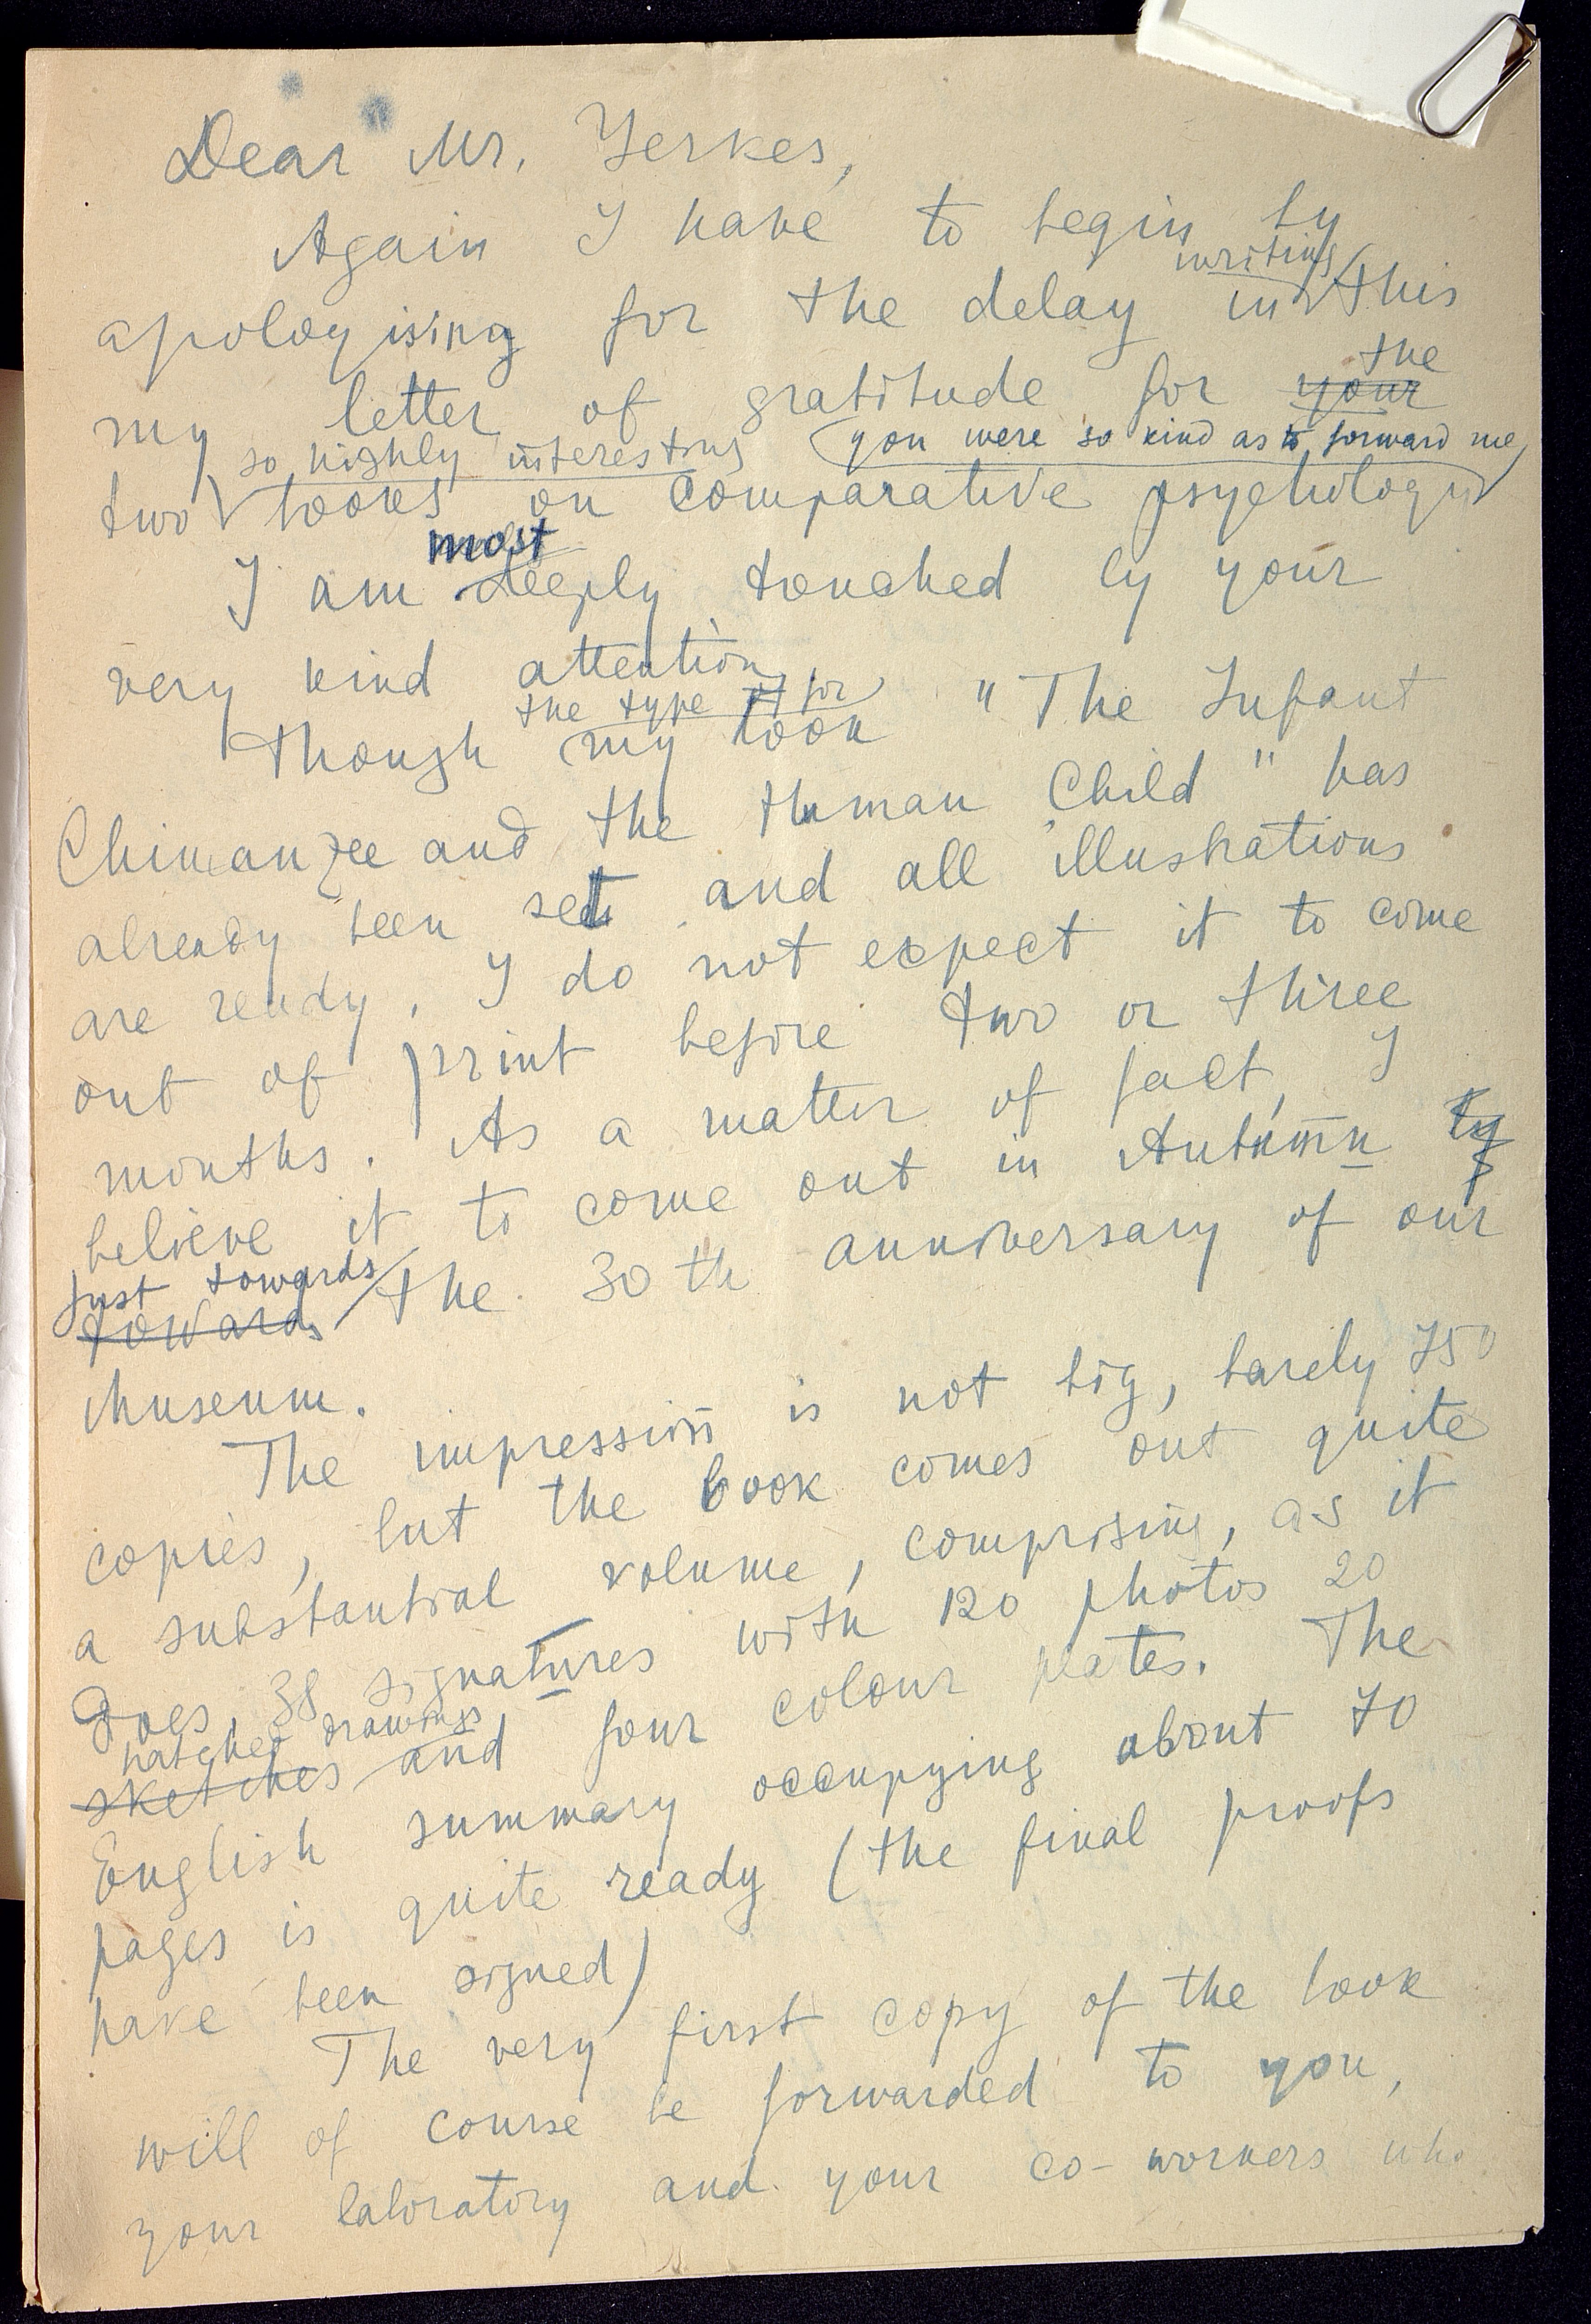 Dear Mr. Yerkes,
Again I have to begin by
writing
apologising for the delay in this
the
my letter of gratitude for your
so highly interesting you were so kind as to forward me
two books on comparative psychology
most
I am deeply touched by your
very kind attention
the type of for
Though my book "The Infant
Chimanzee and the Human Child" has
already been set and all illustrations
are ready, I do not expect it to come
out of print before two or three
months. As a matter of fact, I
believe it to come out in Autumn by
just towards
towards the 30th anniversary of our
Museum.
The impression is not big, barely 750
copies, but the book comes out quite
a substantial volume, comprising, as it
does, 38 signatures with 120 photos 20
hatched drawings
sketches and four colour plates. The
English summary occupying about 70
pages is quite ready (the final proofs
have been signed)
The very first copy of the book
will of course be forwarded to you,
your laboratory and your co-workers who